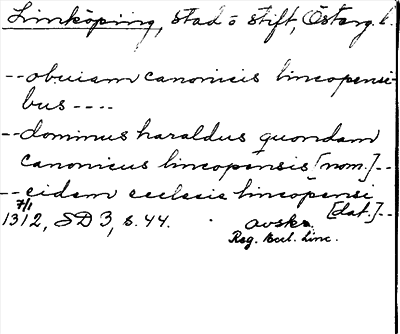 Linköping, stad o stift, Österg. l.
-- obuiam canonicis lincopensi-
bus ----
-- dominus haraldus quondam
canonicus lincopensis [nom.] --
-- eidem ecclesie lincopensi
[dat.] --
7/1
1312, SD 3, s. 44. avskr.
Reg. Eccl. Linc.